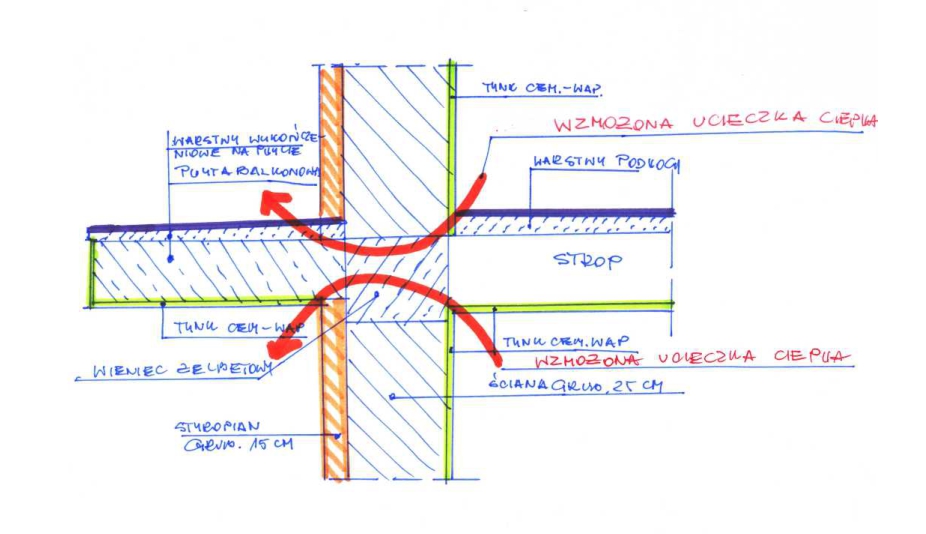 TYNK CEM.-WAP.
WZMOŻONA UCIECZKA CIEPŁA
WARSTWY WYKOŃCZE-
NIOWE NA PŁYCIE
PŁYTA BALKONOWA
WARSTWY PODŁOGI
STROP
TYNK CEM-WAP
TYNK CEM.WAP
WZMOŻONA UCIECZKA CIEPŁA
WIENIEC ŻELBETOWY
ŚCIANA GRUB. 25 CM
STYROPIAN
GRUB. 15 CM